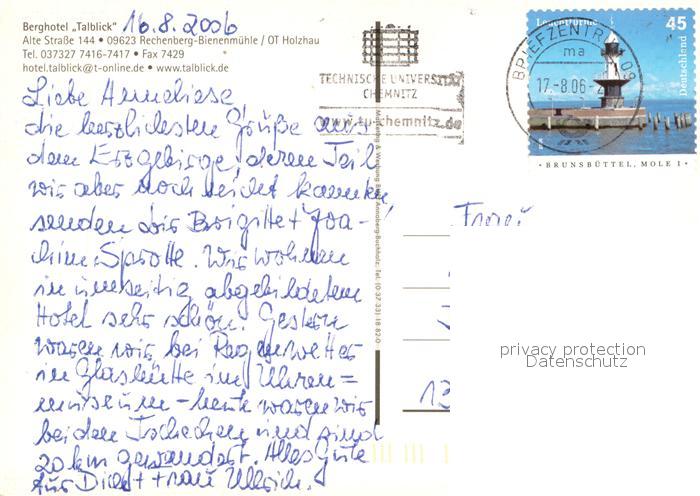 Berghotel „Talblick" 16.8.2006
Alte Straße 144 • 09623 Rechenberg-Bienenmühle / OT Holzhau
Tel. 037327 7416-7417 • Fax 7429
hotel.talblick@t-online.de • www.talblick.de
Liebe Anneliese,
die herzlichsten Grüße aus
dem Erzgebirge, deren Teil
wir aber noch nicht kannten
senden dir Brigitte + Joa-
chim Sprotte. Wir wohnen
im umseitig abgebildetem
Hotel sehr schön. Gestern
waren wir bei Regenwetter
in Glashütte im Uhren=
museum – heute waren wir
bei den Tschechen und sind
20 km gewandert. Alles Gute
für Dich + Frau Ullrich.
TECHNISCHE UNIVERSITÄT
CHEMNITZ
www.tu-chemnitz.de
BRIEFZENTRUM 09
ma
17.-8.06-2
Leuchttürme
45
Deutschland
• BRUNSBÜTTEL, MOLE 1 •
Annaberg-Buchholz, Tel. (0 37 33) 1 88 20
Frau
12
privacy protection
Datenschutz